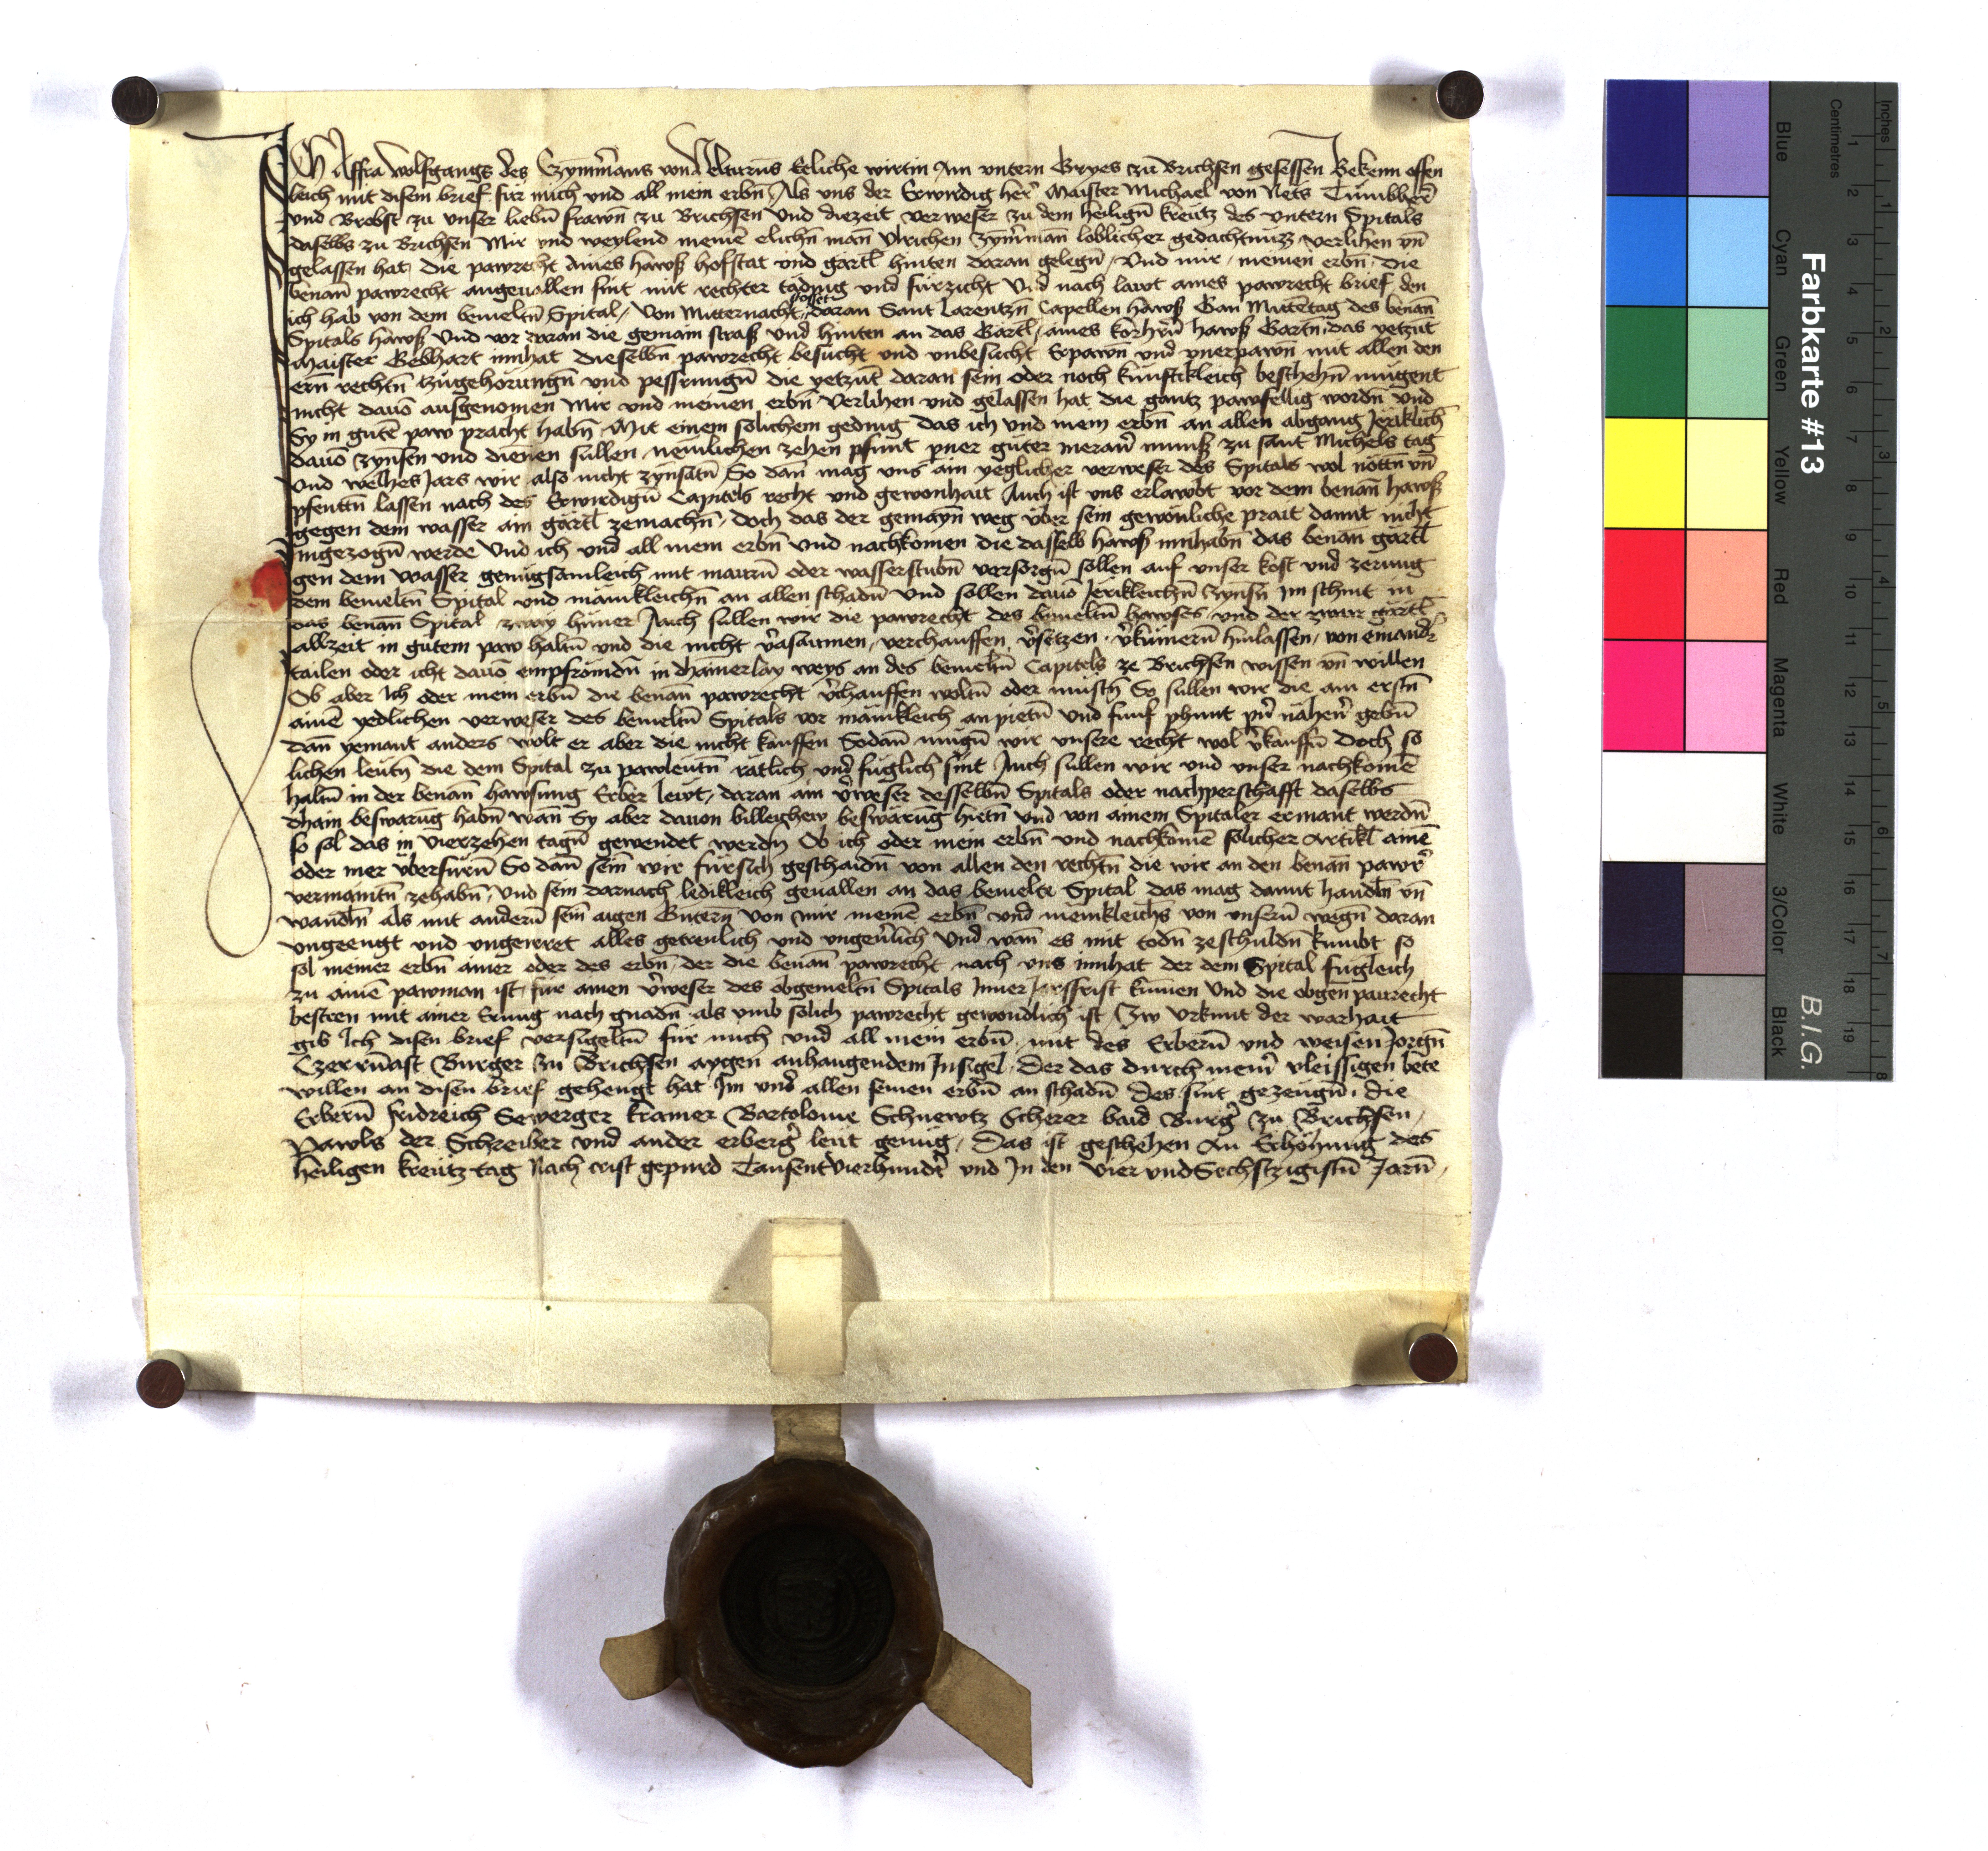 Ich Affra Wolfgangs des Czymm̄mans von Velturns Eeliche wirtin Am untern Gryes zu Brichsen gesessen Bekenn offen
leich mit disem brief für mich und all mein erbn̄ Als uns der Erwirdig her̄ Maister Michael von Nets Tumbher̄
und Brobst zu unser liebn̄ frawn̄ zu Brichsen und diezeit verweser zu dem heilign̄ kreutz des untern Spitals
daselbs zu Brichsen Mir und weylend meinē elichn̄ man̄ Ulrichen Zym̄man̄ loblicher gedachtnüzz verlihen un̄
gelassen hat die pawrecht Aines hawß hofstat und gärtl hinten daran gelegn̄ Und mir meinen erbn̄ die
benan̄ pawrecht angevallen sint mit rechter täding und fürzicht Und nach lawt aines pawrecht brief den
ich hab von dem bemeltn̄ Spital Von Mitternacht stosset daran Sant Larentzn̄ Capellen hawß Gan Mittētag des benan̄
Spitals hawß Und vor daran die gemain straß und hinten an das Gärtl aines korherrn̄ hawß Gartn̄ das yetzūt
Maister Gebhart innhat dieselbn̄ pawrecht besucht und unbesucht Erpawn̄ und unerpawn̄ mit allen den
ern̄ rechtn̄ zugehörungn̄ und pessrungn̄ die yetzūt daran sein oder noch künftikleich beschehn̄ mügent
nicht davō ausgenomen Mir und meinen erbn̄ verlihen und gelassen hat die gantz pawfellig wordn̄ und
Sy in gutē paw pracht habn̄ Mit einem solichem geding das ich und mein erbn̄ an allen abgang Järiklich
davō zynsen und dienen süllen nemlichen zehen pfunt pner guter meran̄ munß zu sant Michels tag
und welhes Jars wir also nicht zynsātn̄ So dan mag uns ain yeglicher verweser des Spitals wol nöttn̄ un̄
pfenttn̄ lassen nach des Erwirdign̄ Capitels recht und gewonhait Auch ist uns erlawbt vor dem benan̄ hawß
gegen dem wasser ain gärtl zemachn̄ doch das der gemayn̄ weg über sein gewönliche prait damit nicht
ingezogn̄ werde Und ich und all mein erbn̄ und nachkomen die dasselb hawß innhabn̄ das benan̄ gärtl
gen dem wasser genugsamleich mit maurn̄ oder wasserstubn̄ versorgn̄ sollen auf unser kost und zerung
dem bemeltn̄ Spital und mänikleichn̄ an allen schadn̄ Und sollen davō Järikleichn̄ Zynsn̄ Im schnit in
das benan̄ Spital zway hüner Auch sullen wir die pawrecht des bemeltn̄ hawses und der zwair gärtl
allzeit in gutem paw haltn̄ und die nicht v̄asaumen verchauffen v̄setzen v̄kümern̄ hinlassen von einand̄
tailen oder icht davō empfrömdn̄ in dhainerlay weys an des bemeltn̄ Capitels ze Brichsen wissen un̄ willen
Ob aber Ich oder mein erbn̄ die benan̄ pawrecht v̄chauffen woltn̄ oder müstn̄ So sullen wir die am erstn̄
ainē yedlichen verweser des bemeltn̄ Spitals vor mänikleich anpietn̄ und funf phunt pn̄ nähen̄ gebn̄
dan̄ yemant anders wolt er aber die nicht kauffen Sodan̄ mugn̄ wir unsere recht wol v̄kauffn̄ doch so
lichen leutn̄ die dem Spital zu pawleutn̄ rätlich und füglich sint Auch sullen wir und unser nachkomē
haltn̄ in der benan̄ hawsung Erber lewt daran ain v̄weser desselbn̄ Spitals oder nachperschafft daselbs
dhain beswarūg habn̄ wan̄ Sy aber davon billeichew beswärūg hietn̄ Und von ainem Spitaler ermant werdn̄
so sol das in vierzehen tagn̄ gewendet werdn̄ Ob ich oder mein erbn̄ und nachkomē solicher Artikl ainē
oder mer überfürn̄ So dan̄ sein wir fürsich geschaidn̄ von allen den rechtn̄ die wir an den benan̄ pawr̄
vermaintn̄ zehabn̄ Und sein darnach ledikleich gevallen an das bemelte Spital das mag damit handln̄ un̄
wandln̄ als mit andern̄ sein aigen Gutern von mir meinē erbn̄ und menikleichs von unsern̄ wegn̄ daran
ungeengt und ungeirret alles getreulich und ungev̄lich Und wan̄ es mit todn̄ zeschuldn̄ kumbt so
sol meiner erbn̄ ainer oder des erbn̄ der die benan̄ pawrecht nach uns innhat der dem Spital fügleich
zu ainē pawman ist für ainen v̄weser des obgemeltn̄ Spitals Inner Jarsfrist kumen Und die obgen̄ paurecht
besteen mit ainer Erung nach gnadn̄ als umb solich pawrecht gewondlich ist Zw Urkunt der warhait
gib Ich disen brief versigeltn̄ für mich und all mein erbn̄ mit des Erbern̄ und weisen Jörgn̄
Burger zu Brichsen aygen anhangendem Insigel Der das durch mein̄ vleissigen bete
willen an disen brief gehengt hat Im und allen seinen erbn̄ an schadn̄ des sint gezeugn̄ die
Erbern̄ fridreich Sewerger kramer Bartolome Schnewtz Scherer baid Burḡ zu Brichsen
Pawls der Schreiber und ander erberḡ leüt genüg Das ist geschehen An Erhöhung des
heiligen kreütz tag Nach crist gepurd Tausent vierhundt̄ und In den vier und Sechstzigistn̄ Jarn̄
Farbkarte #13
B.I.G.
Blue
Cyan
Green
Yellow
Red
Magenta
White
3/Color
Black
Centimetres
Inches
1 2 3 4 5 6 7 8 9 10 11 12 13 14 15 16 17 18 19
1 2 3 4 5 6 7 8